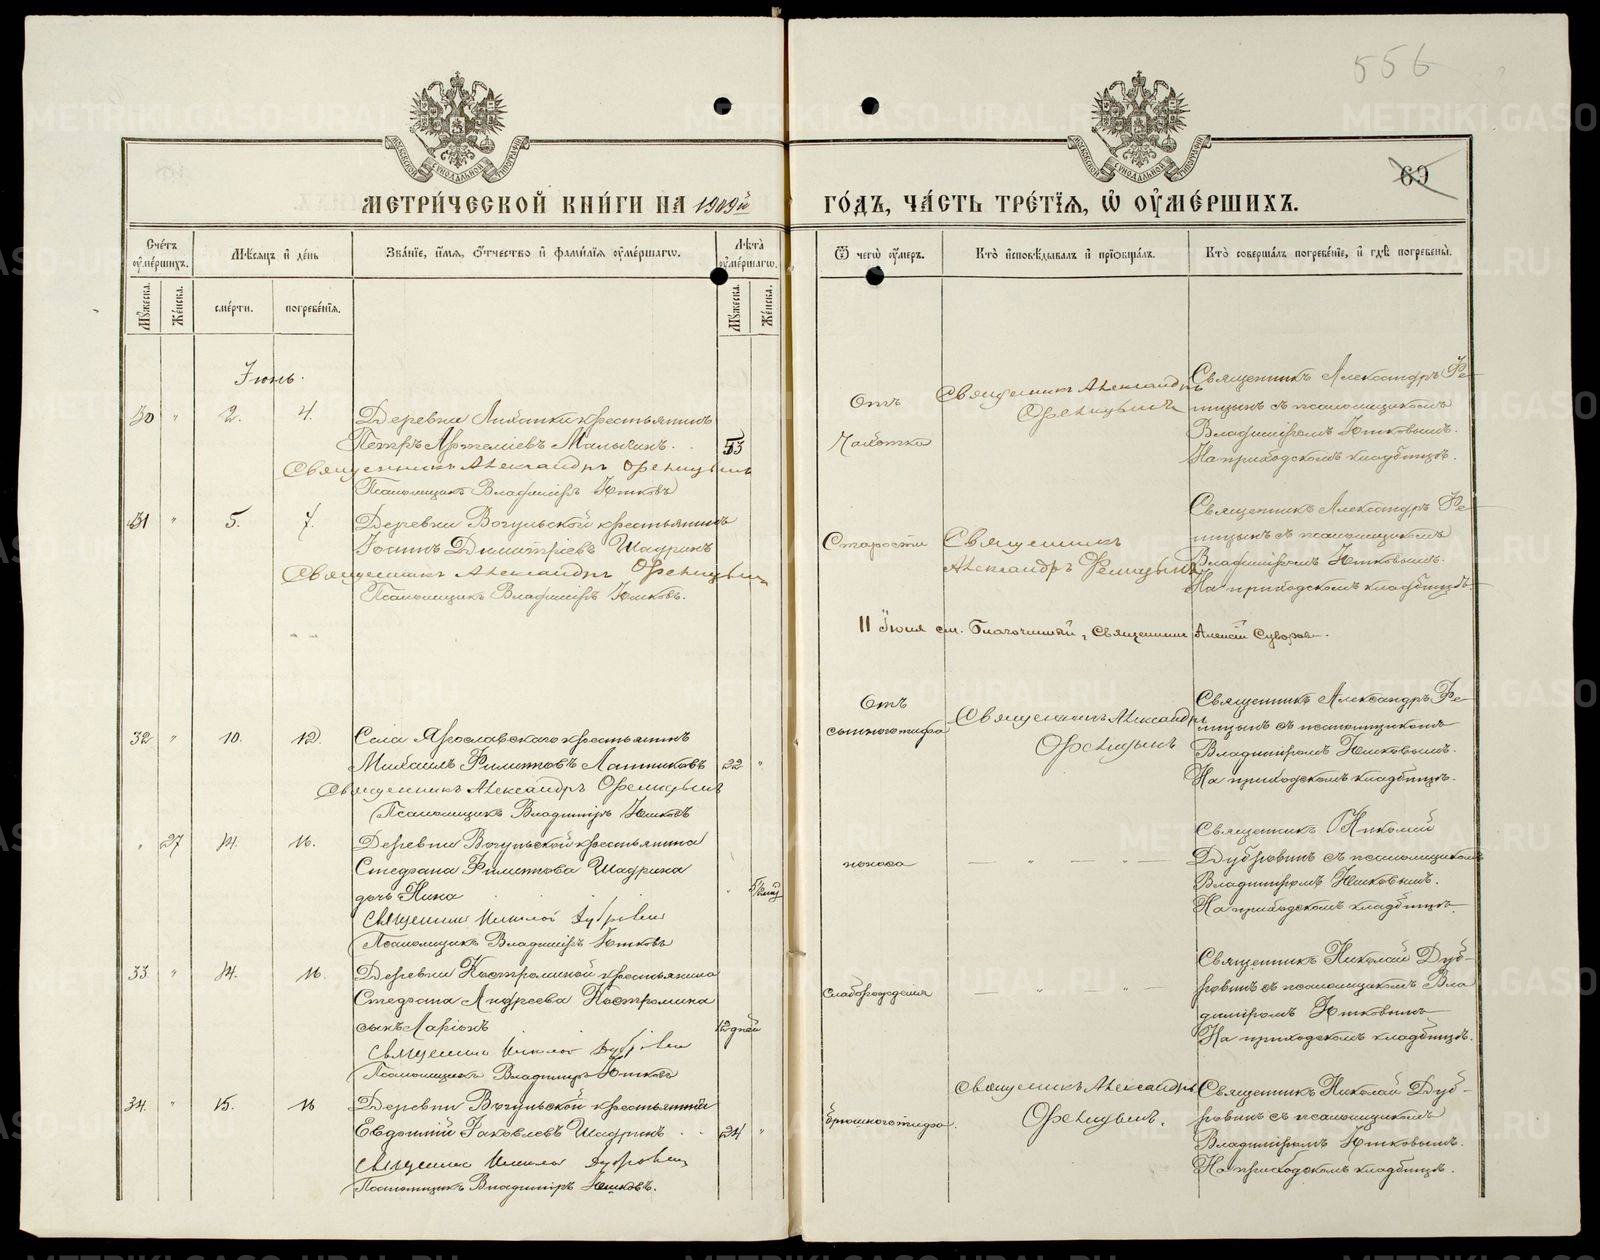 556
69
МЕТРИ́ЧЕСКОЙ КНИ́ГИ НА 1909й
ГО́ДЪ, ЧА́СТЬ ТРЕ́ТІѦ, Ѿ ОУ҆МЕ́РШИХЪ.
Сче́тъ оу҆ме́ршихъ.
Мѣ́сяцъ и҆ де́нь
Зва́нїе, и҆́мѧ, ѻ҆́тчество и҆ фами́лїѧ оу҆ме́ршагѡ.
Лѣ́та оу҆ме́ршагѡ.
Ѿ чегѡ̀ оу҆́меръ.
Кто̀ и҆сповѣ́дывалъ и҆ прїѻбща́лъ.
Кто̀ соверша́лъ погребе́нїе, и҆ гдѣ̀ погребены̀.
Мꙋ́жеска.
Же́нска.
сме́рти.
погребе́нїѧ.
Мꙋ́жеска.
Же́нска.
Іюнь.
30 " 2. 4. Деревни крестьянинъ
Петръ Малыгинъ. 53
Священникъ Александръ Ѳреницынъ
Псаломщикъ Владиміръ Юшковъ
Отъ
Чахотки
Священникъ Александръ
Священникъ Александръ
съ псаломщикомъ
Владиміромъ Юшковымъ.
На приходскомъ кладбищѣ.
31 " 5. 7. Деревни Вогульской крестьянинъ
Димитріевъ Шадринъ
Священникъ Александръ
Псаломщикъ Владиміръ Юшковъ.
Старости
Священникъ
Александръ
Священникъ Александръ
съ псаломщикомъ
Владиміромъ Юшковымъ.
На приходскомъ кладбищѣ.
11 Іюля см. Благочинный, Священникъ Алексій Суворов.
32 " 10. 12. Села Ярославскаго крестьянинъ
Михаилъ Филипповъ Лапшиковъ 22 "
Священникъ Александръ
Псаломщикъ Владиміръ Юшковъ
Отъ
сыпного тифа
Священникъ Александръ
Священникъ Александръ
съ псаломщикомъ
Владиміромъ Юшковымъ.
На приходскомъ кладбищѣ.
" 27 14. 16. Деревни Вогульской крестьянина
Стефана Филиппова Шадрина
дочь Нина
Священник Николай Дубровин
Псаломщикъ Владиміръ Юшковъ
поноса
Священникъ Николай
Дубровинъ съ псаломщикомъ
Владиміромъ Юшковымъ.
На приходскомъ кладбищѣ.
33 " 14. 16. Деревни Костроминой крестьянина
Стефана Андреева Костромина
сынъ Ларіонъ 12 дней
Священник Николай Дубровин
Псаломщикъ Владиміръ Юшковъ
Слаборожденія
Священникъ Николай Дуб-
ровинъ съ псаломщикомъ Вла
диміромъ Юшковымъ
На приходскомъ кладбищѣ.
34. " 15. 16 Деревни Вогульской крестьянинъ
Евдокій Іаковлевъ Шадринъ 24 "
Священник Николай Дубровин
Псаломщикъ Владиміръ Юшковъ.
брюшного тифа.
Священникъ Александръ
Священникъ Николай Дуб-
ровинъ съ псаломщикомъ
Владиміромъ Юшковымъ.
На приходскомъ кладбищѣ.
METRIKI.GASO-URAL.RU